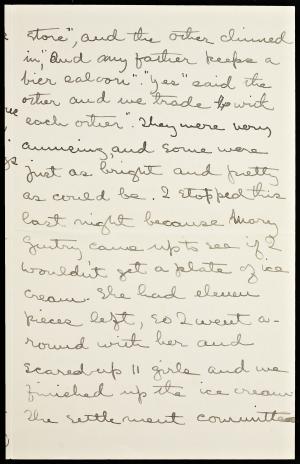 store", and the other chimed
in, "and my father keeps a
bier saloon". "Yes" said the
other and we trade with
each other". They were very
amusing, and some were
just as bright and pretty
as could be. I stopped this
last night because Mary
Gentry came up to see if I
wouldn't get a plate of ice
cream. She had eleven
pieces left, so I went a-
round with her and
scared up 11 girls and we
finished up the ice cream
The settlement committee